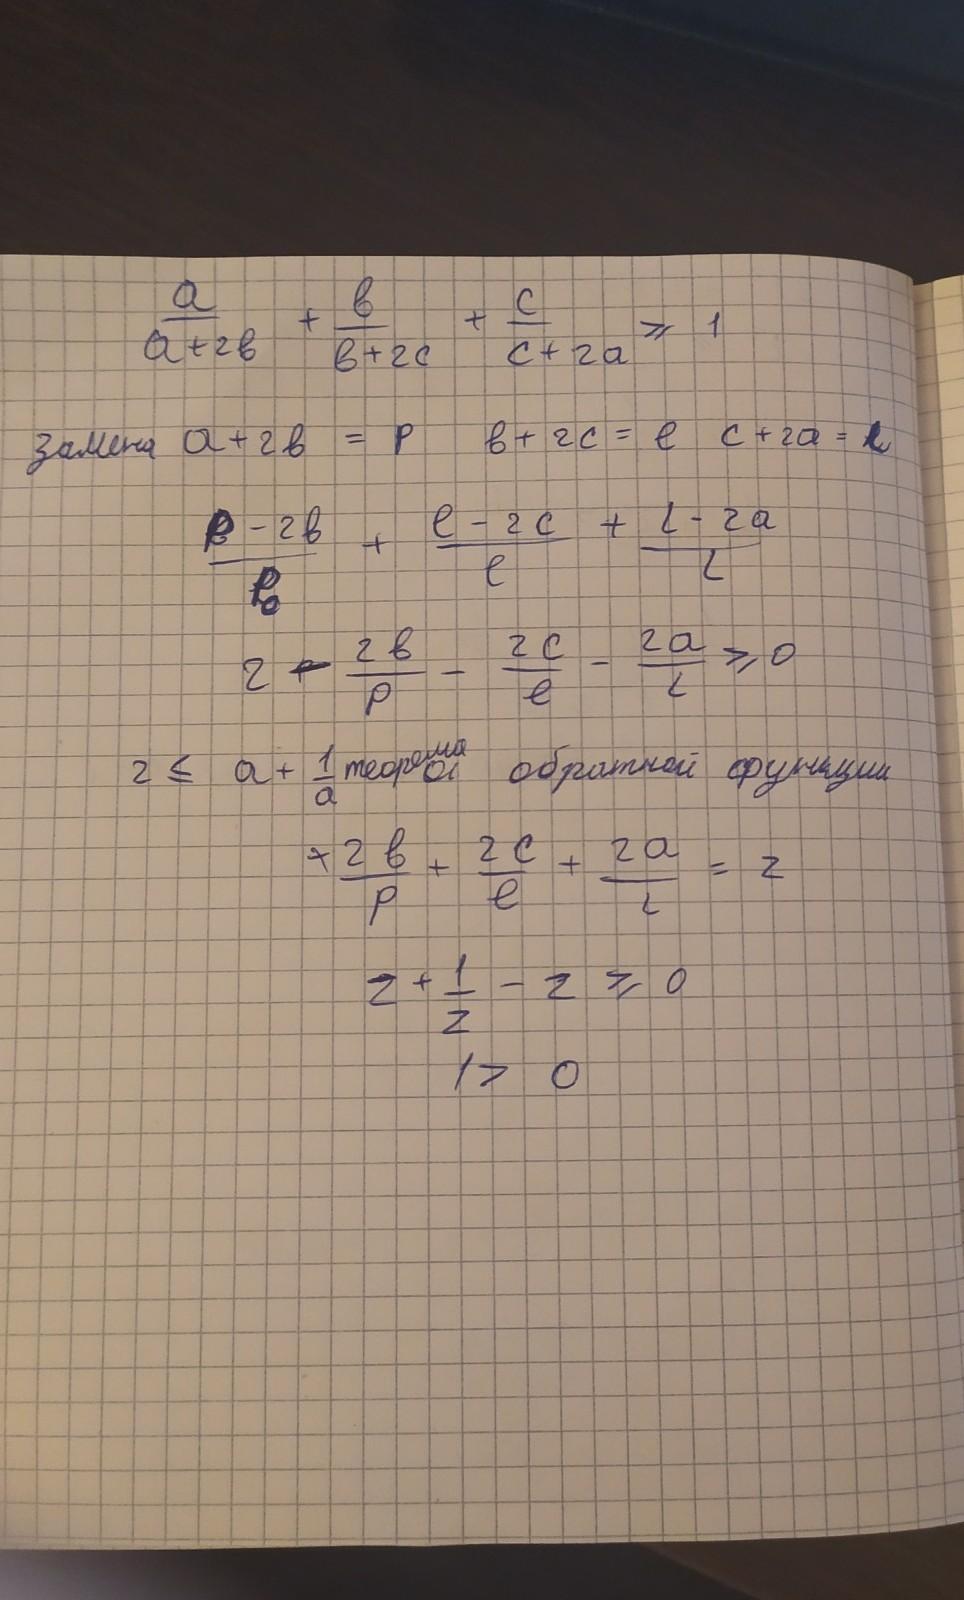 a/(a+2b) + b/(b+2c) + c/(c+2a) ≥ 1
Замена a+2b = p b+2c = e c+2a = l
(p-2b)/p + (e-2c)/e + (l-2a)/l
2 - 2b/p - 2c/e - 2a/l ≥ 0
2 ≤ a + 1/a теорема обратной функции
+ 2b/p + 2c/e + 2a/l = z
z + 1/z - z ≥ 0
1 > 0